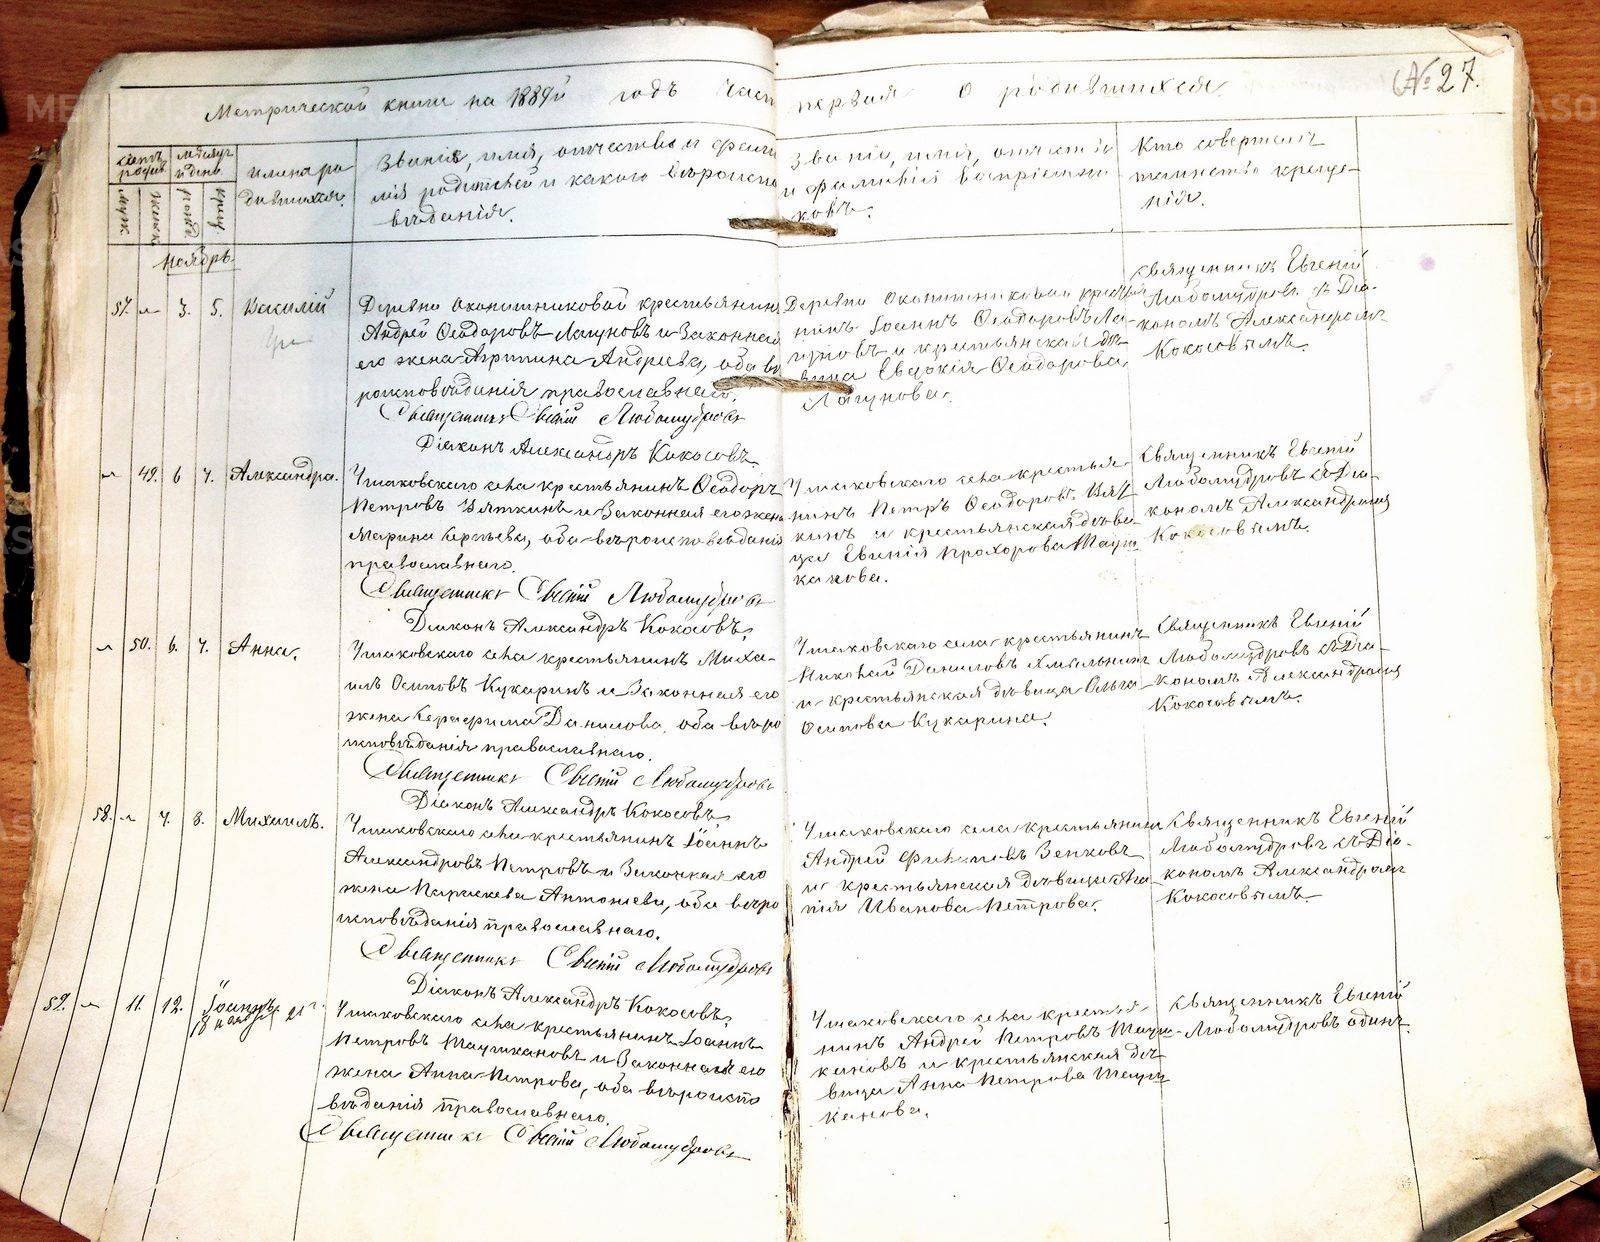 Метрической книги на 1889й годъ часть первая о родившихся
№ 27.
Счетъ родив.
Мѣсяцъ и день
муж.
женск.
рожд.
крещ.
имена родившихся.
Званіе, имя, отчество и фами-
лія родителей и какого вѣроиспо-
вѣданія.
Званіе, имя, отчество
и фамилія воспріемни-
ковъ.
Кто совершалъ
таинство креще-
нія.
Ноябрь
57. 3. 5. Василій
Деревни Оконишниковой крестьянинъ
Андрей Ѳеодоровъ Лагуновъ и законная
его жена Агрипина Андреева, оба вѣ
роисповѣданія православнаго.
Священникъ Евгеній Любомудровъ
Діаконъ Александръ Кокосовъ.
Деревни Оконишниковой крестья-
нинъ Іоаннъ Ѳеодоровъ Ла-
гуновъ и крестьянская дѣ-
вица Евдокія Ѳеодорова
Лагунова.
Священникъ Евгеній
Любомудровъ съ Діа-
кономъ Александромъ
Кокосовымъ.
49. 6 7. Александра.
Ушаковскаго села крестьянинъ Ѳеодоръ
Петровъ Вяткинъ и законная его жена
Марина Сергѣева, оба вѣроисповѣданія
православнаго.
Священникъ Евгеній Любомудровъ
Діаконъ Александръ Кокосовъ.
Ушаковскаго села крестья-
нинъ Петръ Ѳеодоровъ Вят-
кинъ и крестьянская дѣви-
ца Евгенія Прохорова Тауш-
канова.
Священникъ Евгеній
Любомудровъ съ Діа-
кономъ Александромъ
Кокосовымъ.
50. 6. 7. Анна.
Ушаковскаго села крестьянинъ Миха-
илъ Осиповъ Кукаринъ и законная его
жена Серафима Данилова, оба вѣро
исповѣданія православнаго.
Священникъ Евгеній Любомудровъ
Діаконъ Александръ Кокосовъ.
Ушаковскаго села крестьянинъ
Николай Даниловъ
и крестьянская дѣвица Ольга
Осипова Кукарина.
Священникъ Евгеній
Любомудровъ съ Діа-
кономъ Александромъ
Кокосовымъ.
58. 7. 8. Михаилъ.
Ушаковскаго села крестьянинъ Іоаннъ
Александровъ Петровъ и законная его
жена Параскева Антониева, оба вѣро
исповѣданія православнаго.
Священникъ Евгеній Любомудровъ
Діаконъ Александръ Кокосовъ.
Ушаковскаго села крестьянинъ
Андрей Филиповъ Зенковъ
и крестьянская дѣвица Ага-
пія Иванова Петрова.
Священникъ Евгеній
Любомудровъ съ Діа-
кономъ Александромъ
Кокосовымъ.
59. 11. 12. Іоаннъ
Ушаковскаго села крестьянинъ Іоаннъ
Петровъ Таушкановъ и законная его
жена Анна Петрова, оба вѣроиспо
вѣданія православнаго.
Священникъ Евгеній Любомудровъ
Ушаковскаго села крестья-
нинъ Андрей Петровъ Тауш-
кановъ и крестьянская дѣ-
вица Анна Петрова Тауш-
канова.
Священникъ Евгеній
Любомудровъ одинъ.